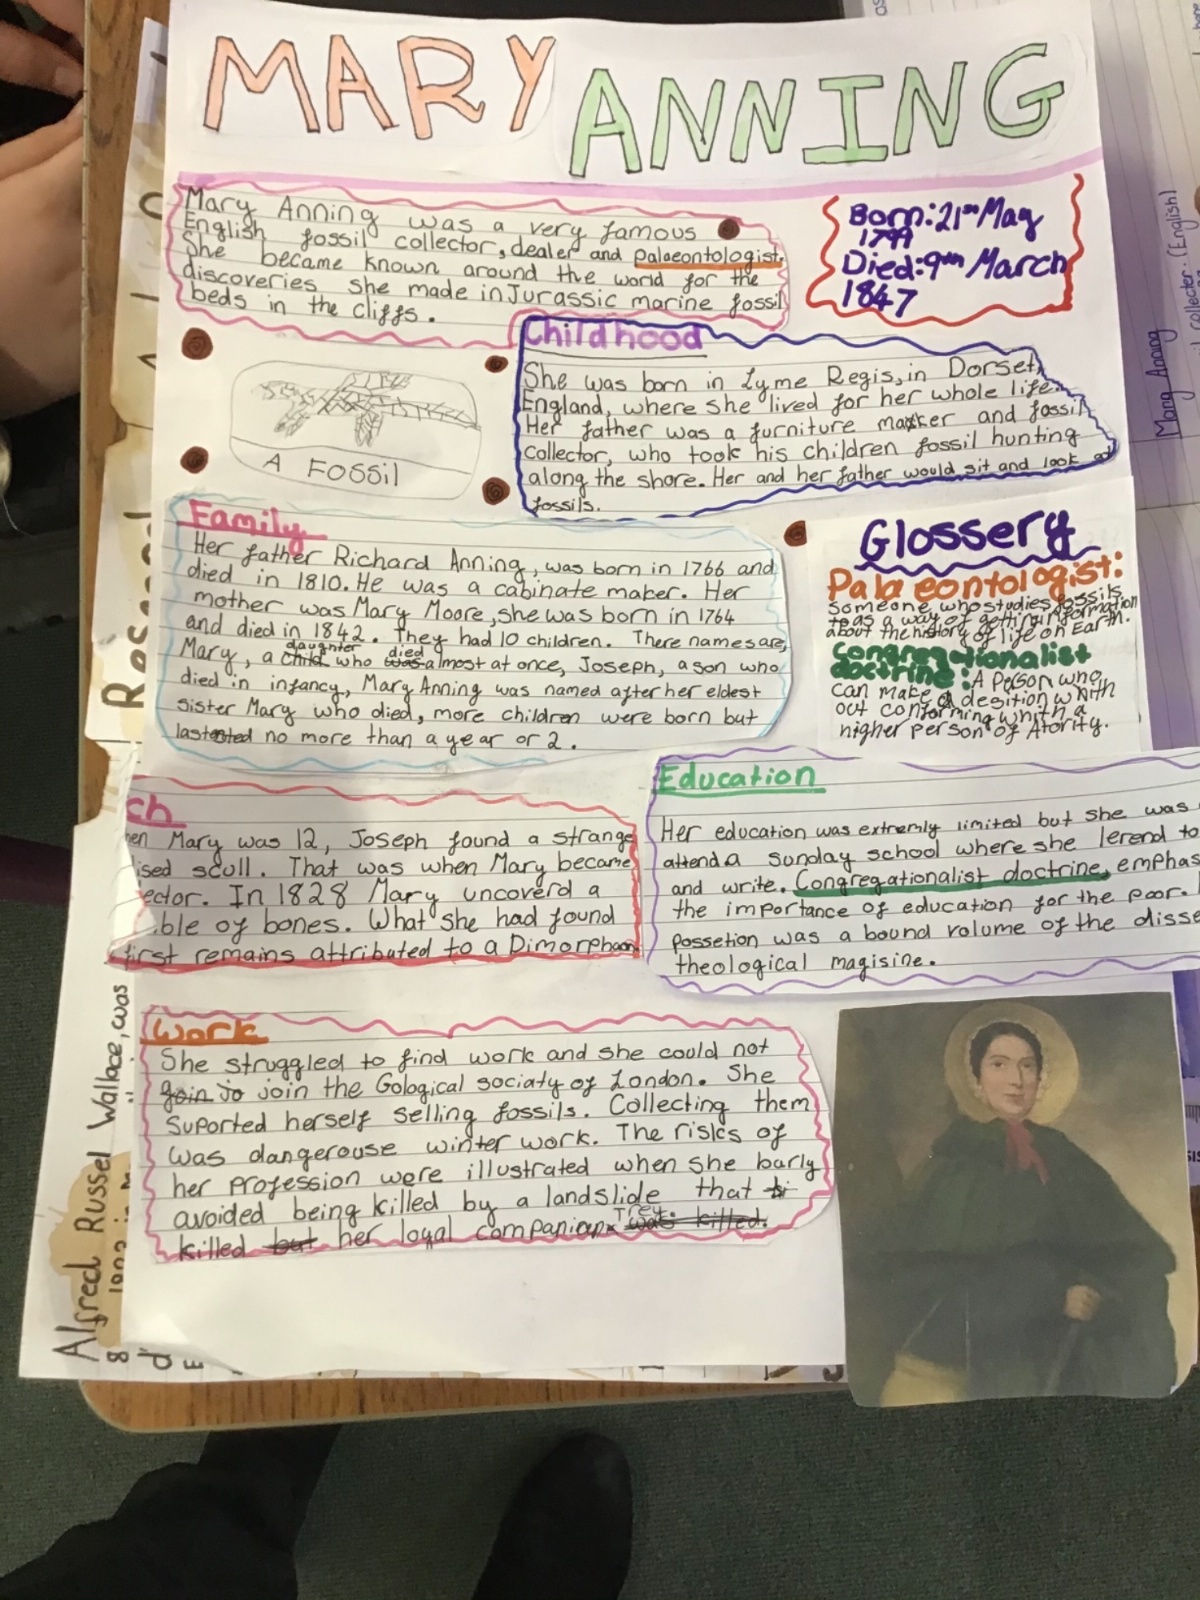 MARY ANNING
Mary Anning was a very famous
English fossil collector, dealer and palaeontologist.
She became known around the world for the
discoveries she made in Jurassic marine fossil
beds in the cliffs.
Born: 21st May
1799
Died: 9th March
1847
Childhood
She was born in Lyme Regis, in Dorset,
England, where she lived for her whole life.
Her father was a furniture maker and fossil
collector, who took his children fossil hunting
along the shore. Her and her father would sit and look at
fossils.
A FOSSIL
Family
Her father Richard Anning, was born in 1766 and
died in 1810. He was a cabinate maker. Her
mother was Mary Moore, she was born in 1764
and died in 1842. They had 10 children. There names are,
Mary, a child daughter who was died almost at once, Joseph, a son who
died in infancy, Mary Anning was named after her eldest
sister Mary who died, more children were born but
lasted no more than a year or 2.
Glossery
Palaeontologist:
Someone who studies fossils
as a way of getting information
about the history of life on Earth.
Congregationalist
doctrine: A person who
can make a desition whith
out conforming whith a
higher person of Atority.
ch
en Mary was 12, Joseph found a strange
ised scull. That was when Mary became
ector. In 1828 Mary uncoverd a
ble of bones. What she had found
first remains attributed to a Dimorphodon
Education
Her education was extremly limited but she was
attend a Sunday school where she lerend to
and write. Congregationalist doctrine, emphas
the importance of education for the poor.
possetion was a bound volume of the disse
theological magisine.
Work
She struggled to find work and she could not
join to join the Gological sociaty of London. She
suported herself selling fossils. Collecting them
was dangerouse winter work. The risks of
her profession were illustrated when she barly
avoided being killed by a landslide that
killed but her loyal companion Trey. was killed.
Alfred Russel Wallace, was
Mary Anning
collecter. (English)